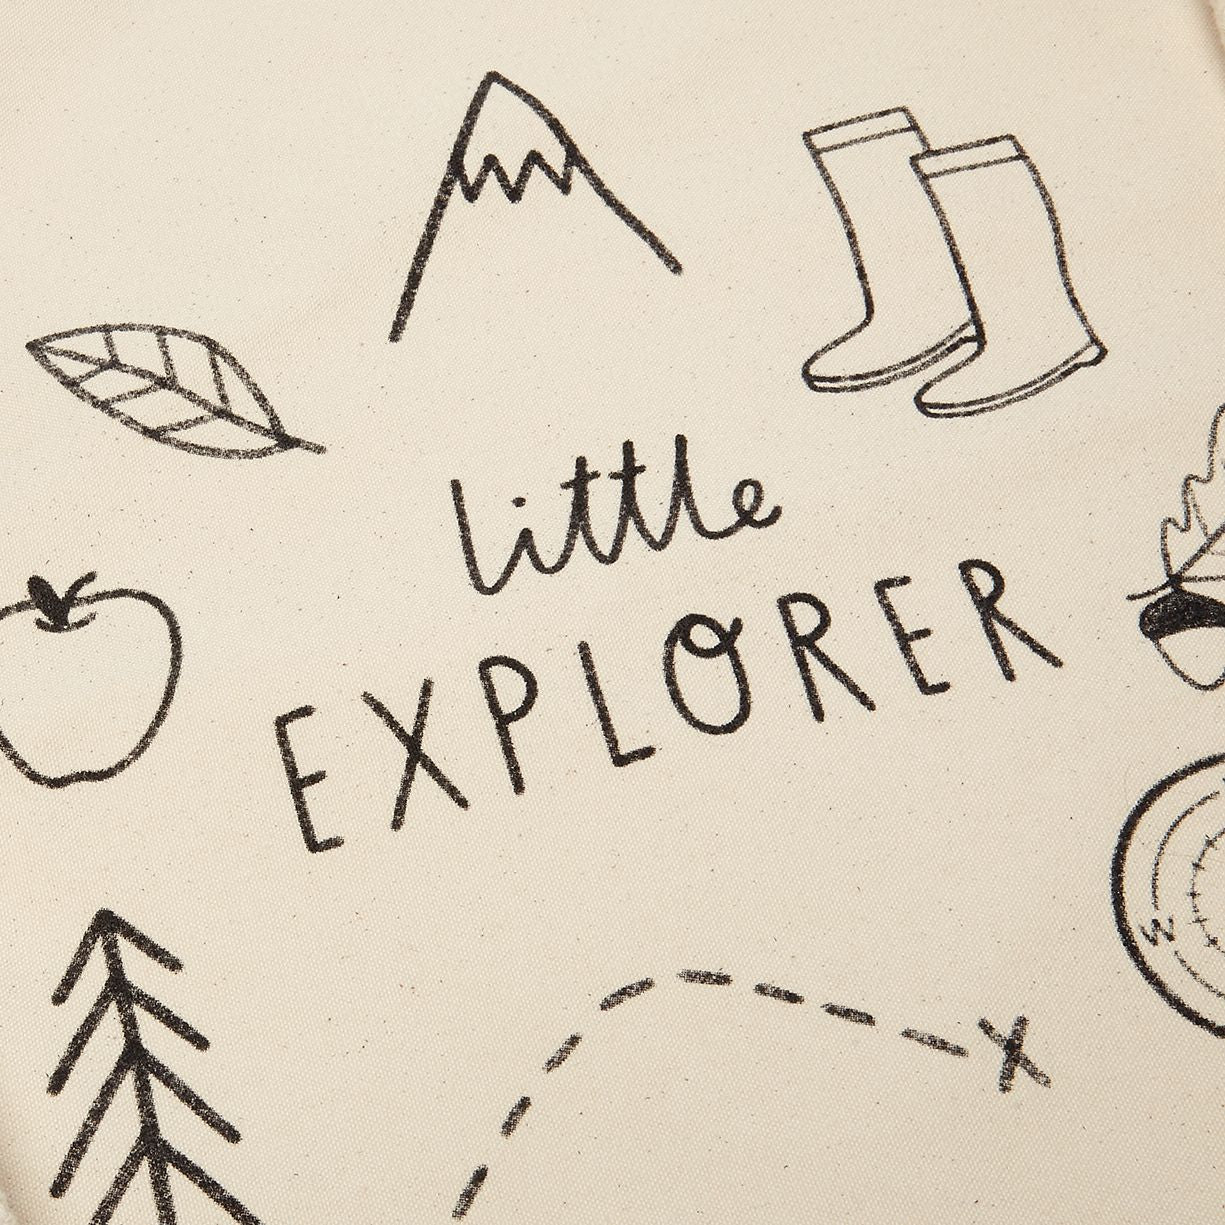 little
EXPLORER
W
X